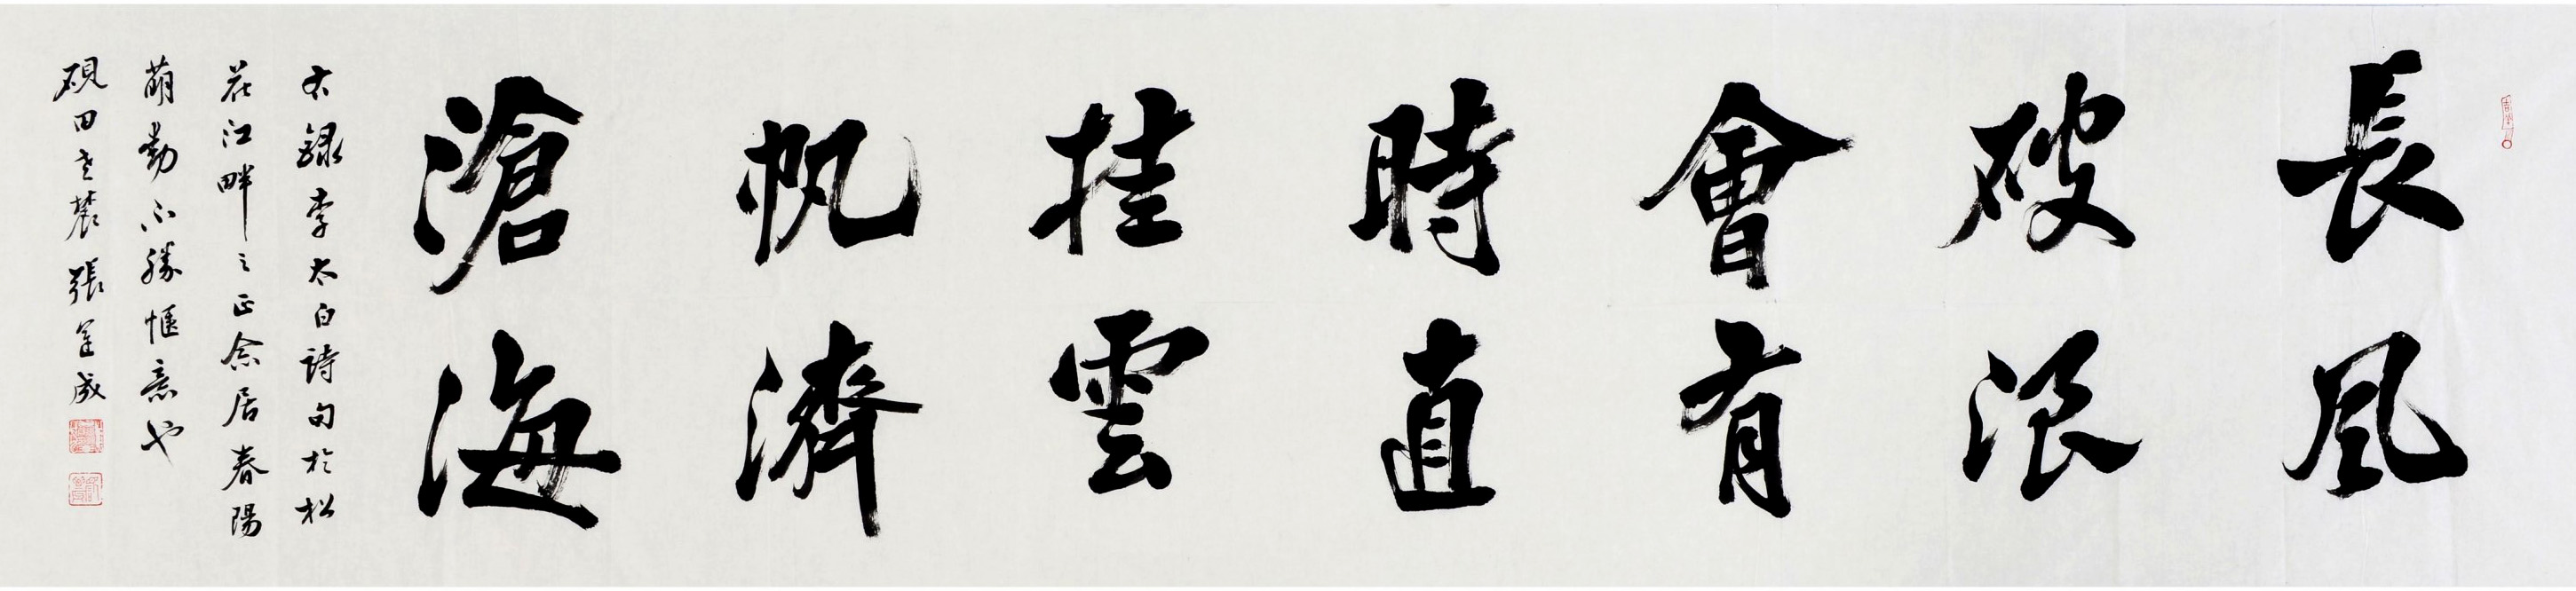 長風
破浪
會有
時直
挂雲
帆濟
滄海
右録李太白詩句於松
花江畔之正念居春陽
萌動不勝惬意也
硯田老農張篷成